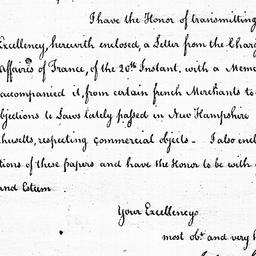 I have the Honor of transmitting
Excellency, herewith enclosed, a Letter from the Charg
Affaires of France, of the 20th Instant, with a Memo
accompanied it, from certain french Merchants to
bjections to Laws lately passed in New Hampshire
husetts, respecting commercial objects - I also encl
tions of these papers and have the Honor to be with
and Esteem
Your Excellencys
most obt and very h